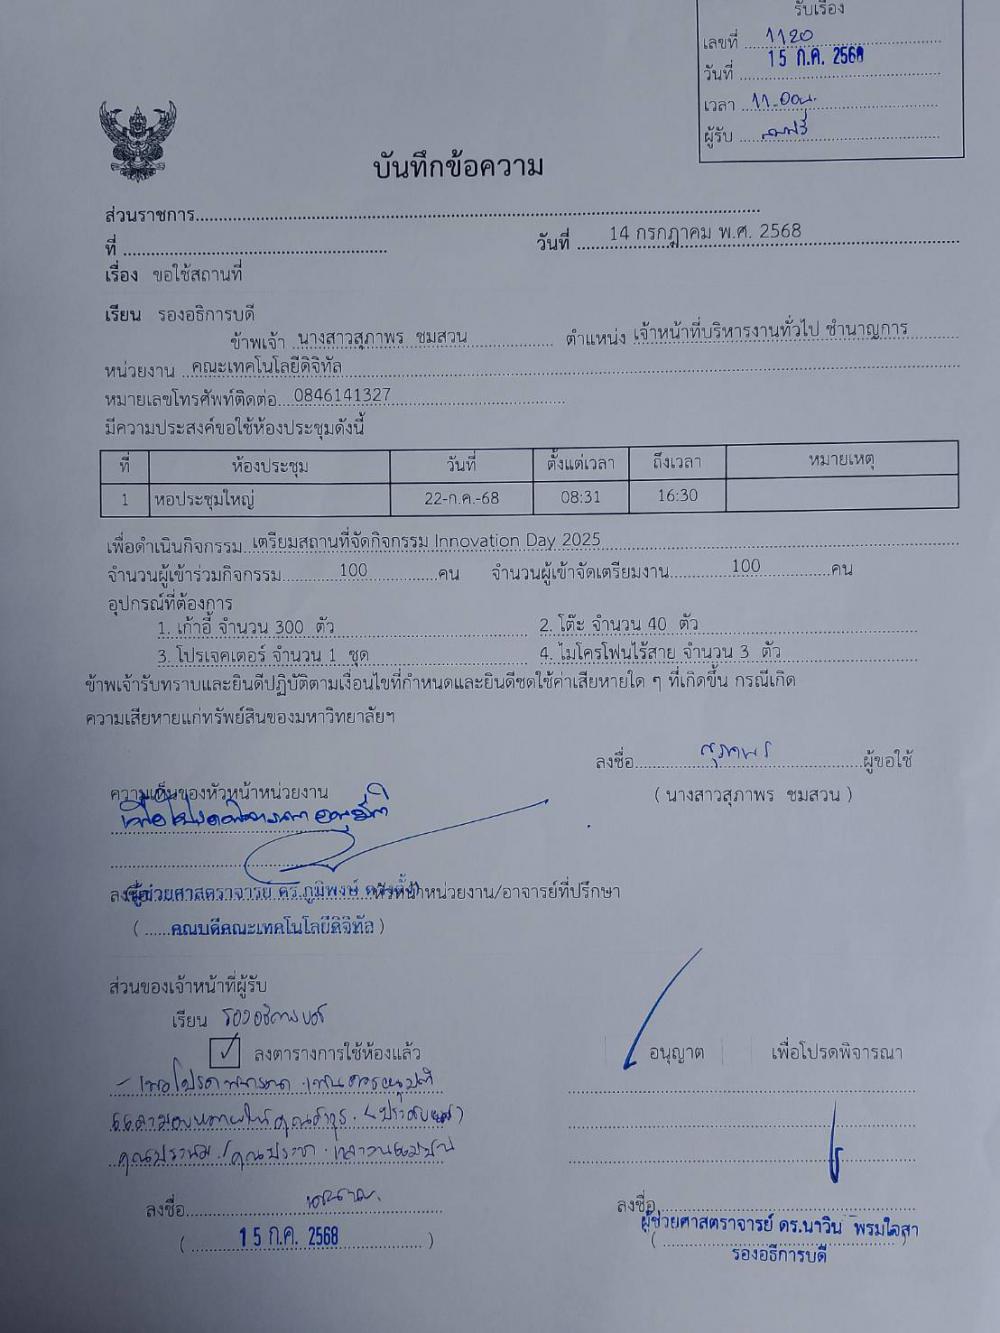 รับเรื่อง
เลขที่ 1120
15 ก.ค. 2568
วันที่
เวลา 11.00น.
ผู้รับ
บันทึกข้อความ
ส่วนราชการ
ที่ วันที่ 14 กรกฎาคม พ.ศ. 2568
เรื่อง ขอใช้สถานที่
เรียน รองอธิการบดี
ข้าพเจ้า นางสาวสุภาพร ชมสวน ตำแหน่ง เจ้าหน้าที่บริหารงานทั่วไป ชำนาญการ
หน่วยงาน คณะเทคโนโลยีดิจิทัล
หมายเลขโทรศัพท์ติดต่อ 0846141327
มีความประสงค์ขอใช้ห้องประชุมดังนี้
ที่ ห้องประชุม วันที่ ตั้งแต่เวลา ถึงเวลา หมายเหตุ
1 หอประชุมใหญ่ 22-ก.ค.-68 08:31 16:30
เพื่อดำเนินกิจกรรม เตรียมสถานที่จัดกิจกรรม Innovation Day 2025
จำนวนผู้เข้าร่วมกิจกรรม 100 คน จำนวนผู้เข้าจัดเตรียมงาน 100 คน
อุปกรณ์ที่ต้องการ
1. เก้าอี้ จำนวน 300 ตัว 2. โต๊ะ จำนวน 40 ตัว
3. โปรเจคเตอร์ จำนวน 1 ชุด 4. ไมโครโฟนไร้สาย จำนวน 3 ตัว
ข้าพเจ้ารับทราบและยินดีปฏิบัติตามเงื่อนไขที่กำหนดและยินดีชดใช้ค่าเสียหายใด ๆ ที่เกิดขึ้น กรณีเกิด
ความเสียหายแก่ทรัพย์สินของมหาวิทยาลัยฯ
ลงชื่อ สุภาพร ผู้ขอใช้
(นางสาวสุภาพร ชมสวน)
ความเห็นของหัวหน้าหน่วยงาน
เพื่อโปรดพิจารณา อนุมัติ
ลงชื่อ ผู้ช่วยศาสตราจารย์ ดร.ภูมิพงษ์ หัวหน้าหน่วยงาน/อาจารย์ที่ปรึกษา
( คณบดีคณะเทคโนโลยีดิจิทัล )
ส่วนของเจ้าหน้าที่ผู้รับ
เรียน รองอธิการบดี
ลงตารางการใช้ห้องแล้ว อนุญาต เพื่อโปรดพิจารณา
- เพื่อโปรดพิจารณา เห็นควรอนุมัติ
ลงชื่อ ลงชื่อ
( 15 ก.ค. 2568 ) ผู้ช่วยศาสตราจารย์ ดร.นาวิน พรมใจสา
รองอธิการบดี